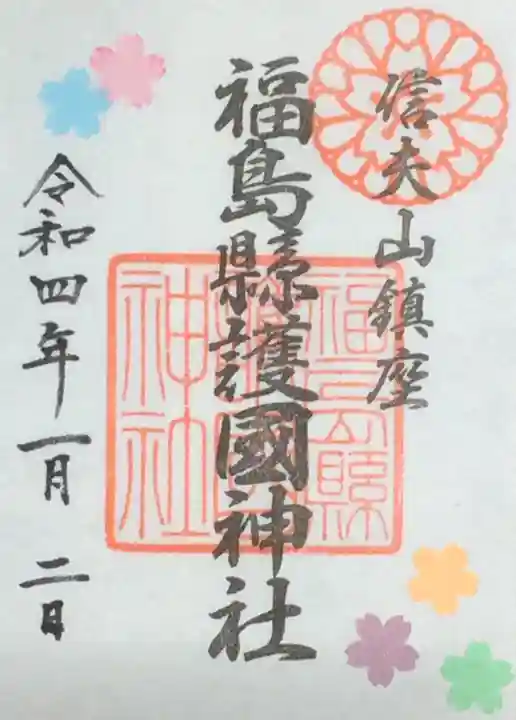 信夫山鎮座
福島縣護國神社
令和四年一月二日
福島縣
護國
神社